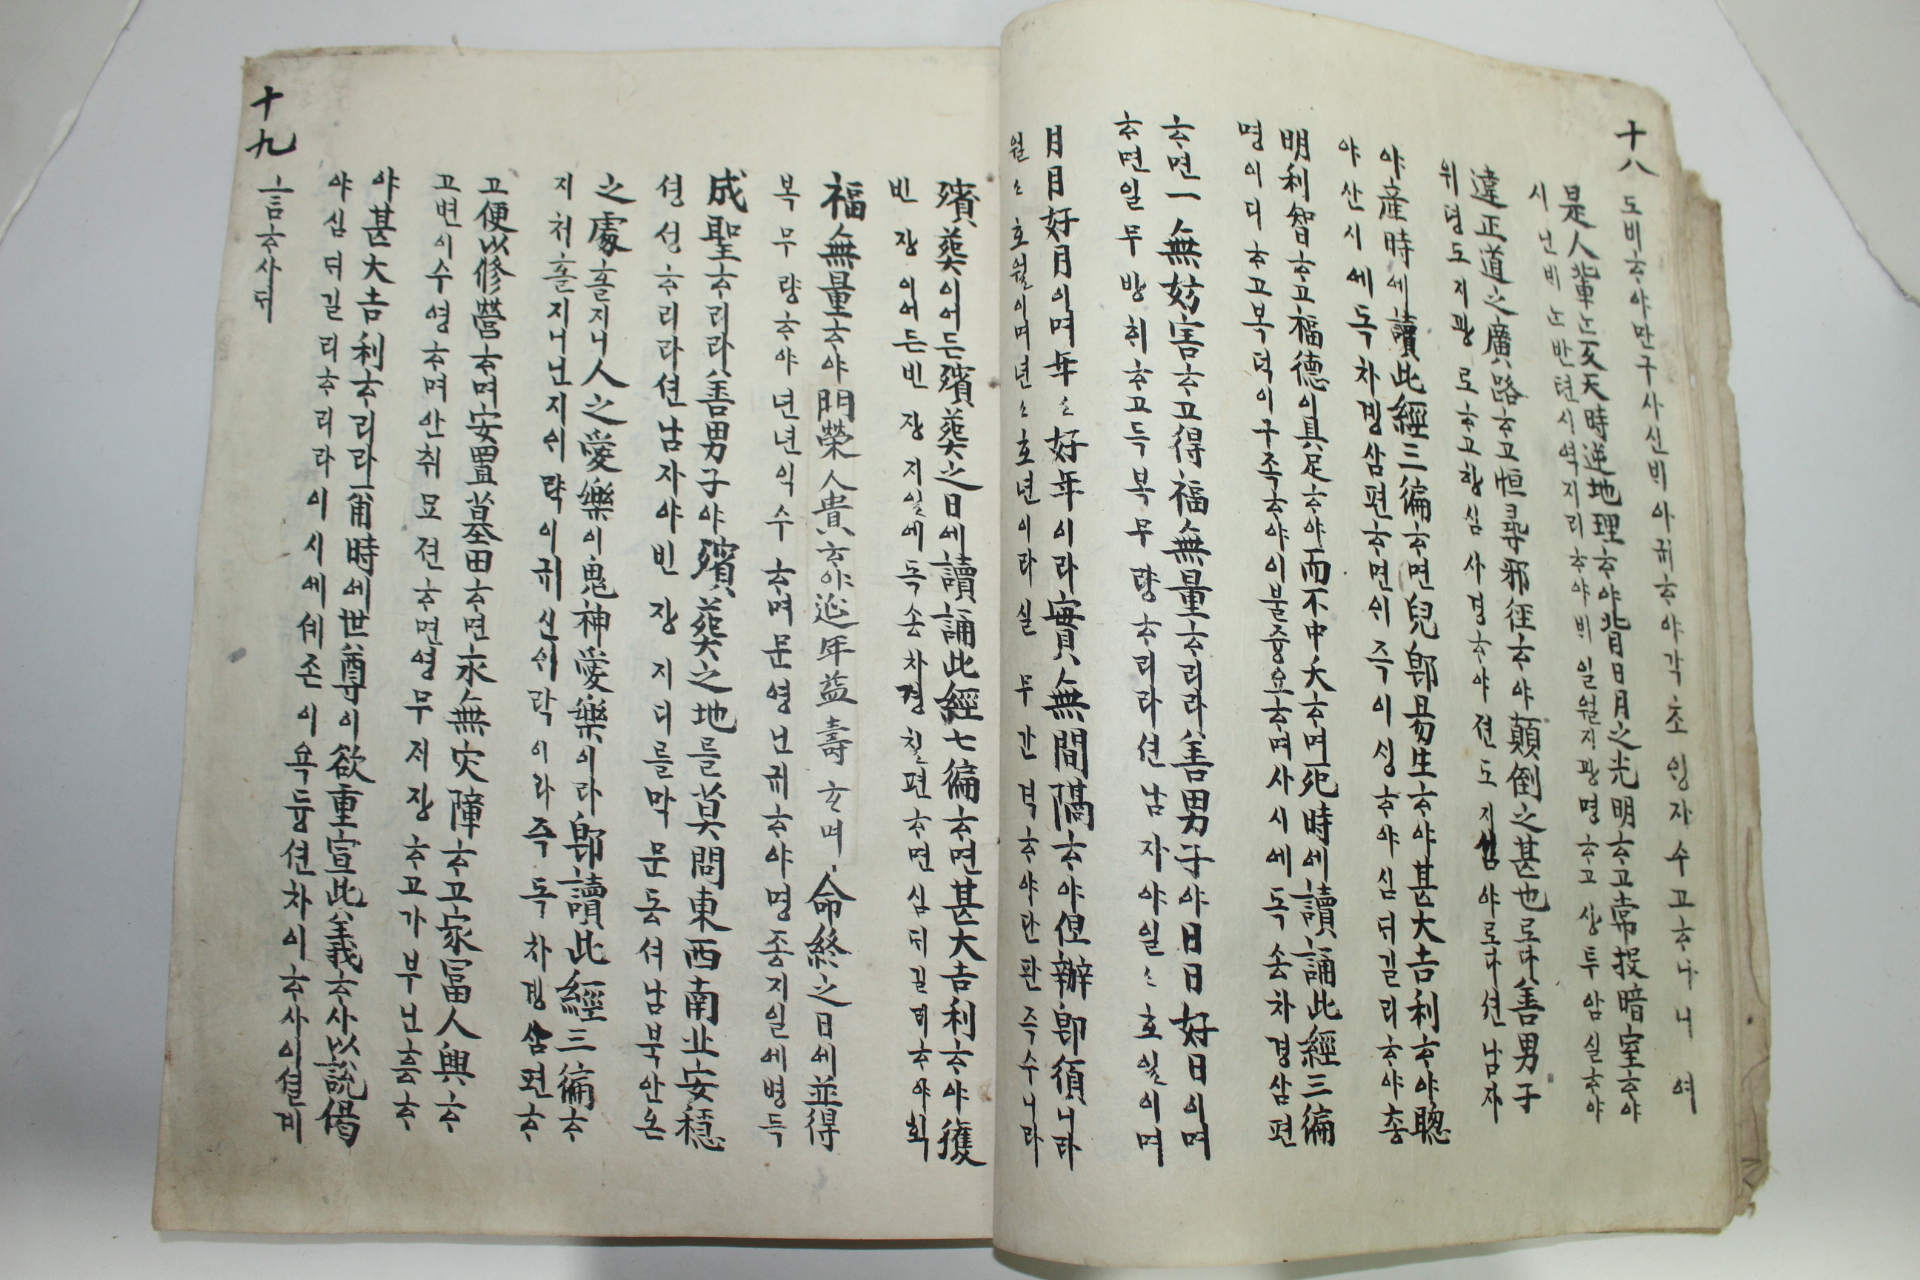 十八
도비ᄒᆞ야만구사신비아귀ᄒᆞ야각초잉자수고ᄒᆞ나니 여
是人輩는反天時逆地理ᄒᆞ야背日月之光明ᄒᆞ고常投暗室ᄒᆞ야
시닌비는반텬시역지리ᄒᆞ야비일월지광명ᄒᆞ고상투암실ᄒᆞ야
違正道之廣路ᄒᆞ고恒尋邪徑ᄒᆞ야顛倒之甚也로다善男子
위뎡도지광로ᄒᆞ고항심사경ᄒᆞ야젼도지심야로다션남자
야産時에讀此經三徧ᄒᆞ면兒卽易生ᄒᆞ야甚大吉利ᄒᆞ야聰
야산시에독차경삼편ᄒᆞ면쉬즉이싱ᄒᆞ야심뎌길리ᄒᆞ야총
明利智ᄒᆞ고福德이具足ᄒᆞ야而不中夭ᄒᆞ며死時에讀誦此經三徧
명이디ᄒᆞ고복덕이구족ᄒᆞ야이불즁요ᄒᆞ며사시에독송차경삼편
ᄒᆞ면一無妨害ᄒᆞ고得福無量ᄒᆞ리라善男子야日日好日이며
ᄒᆞ면일무방히ᄒᆞ고득복무량ᄒᆞ리라션남자야일〻호일이며
月月好月이며年〻好年이라實無間隔ᄒᆞ야但辦卽須니라
월〻호월이며년〻호년이라실무간격ᄒᆞ야단판즉수니라
殯葬이어든殯葬之日에讀誦此經七徧ᄒᆞ면甚大吉利ᄒᆞ야獲
빈장이어든빈장지일에독송차경칠편ᄒᆞ면심뎌길리ᄒᆞ야획
福無量ᄒᆞ야門榮人貴ᄒᆞ야延年益壽ᄒᆞ며命終之日에並得
복무량ᄒᆞ야년년익수ᄒᆞ며문영닌귀ᄒᆞ야명종지일에병득
成聖ᄒᆞ리라善男子야殯葬之地를莫問東西南北安穩
셩셩ᄒᆞ리라션남자야빈장지디를막문동셔남북안온
之處ᄒᆞᆯ지니人之愛樂이鬼神愛樂이라卽讀此經三徧ᄒᆞ
지처ᄒᆞᆯ지니닌지ᅀᅵ락이귀신ᅀᅵ락이라즉독차경삼편ᄒᆞ
고便以修營ᄒᆞ며安置墓田ᄒᆞ면永無灾障ᄒᆞ고家富人興ᄒᆞ
고변이수영ᄒᆞ며안취묘젼ᄒᆞ면영무저장ᄒᆞ고가부닌흥ᄒᆞ
야甚大吉利ᄒᆞ리라爾時에世尊이欲重宣此義ᄒᆞ사以說偈
야심뎌길리ᄒᆞ리라이시에셰존이욕듕션차이ᄒᆞ사이셜게
十九
言ᄒᆞ사뎌